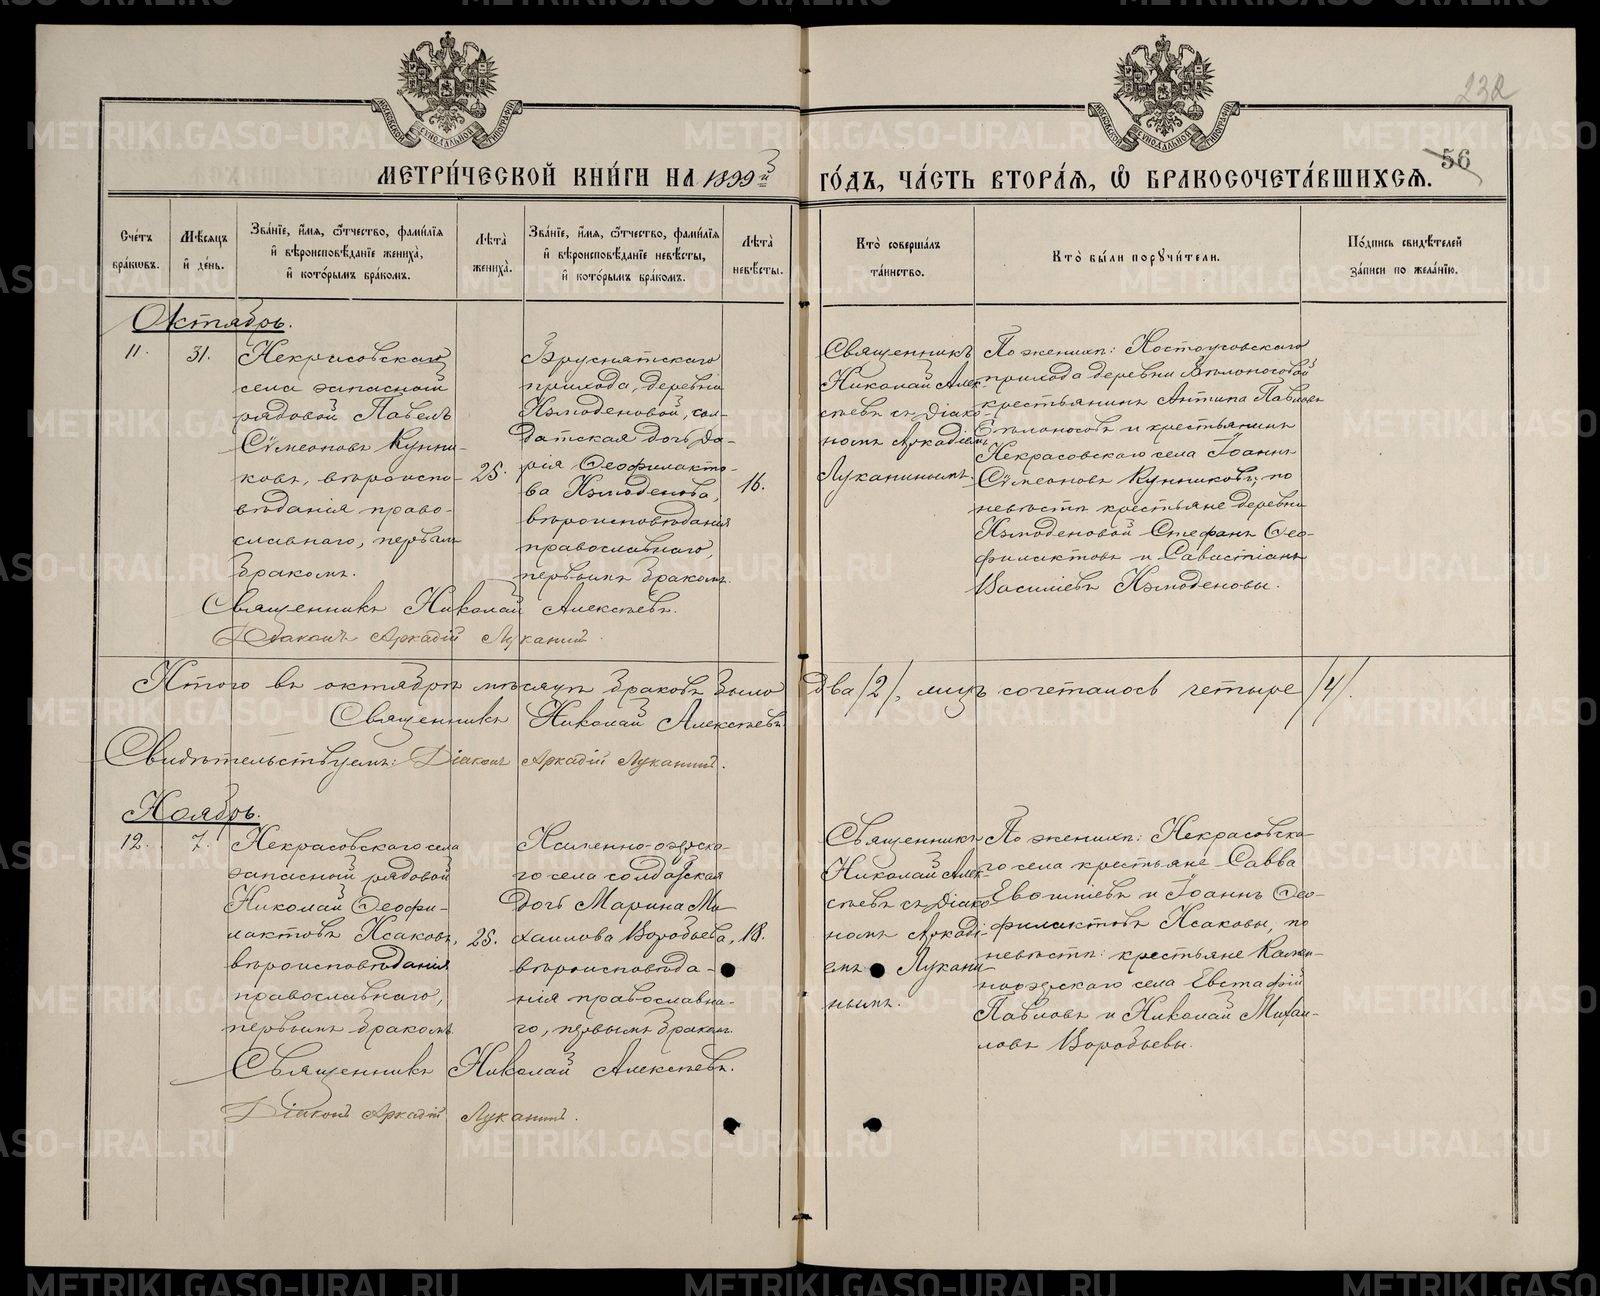 232
56
МОСКОВСКОЙ СѴНОДАЛЬНОЙ ТИПОГРАФІИ
МОСКОВСКОЙ СѴНОДАЛЬНОЙ ТИПОГРАФІИ
МЕТРИ́ЧЕСКОЙ КНИ́ГИ НА 1899й ГО́ДЪ, ЧА́СТЬ ВТОРА́Ѧ, Ѽ БРАКОСОЧЕТА́ВШИХСѦ.
Сче́тъ
бра́ковъ.
Мѣ́сѧцъ
и҆ де́нь.
Зва́нїе, и҆́мѧ, ѻ҆́тчество, фами́лїѧ
и҆ вѣроисповѣ́данїе жениха̀,
и҆ кото́рымъ бра́комъ.
Лѣта̀
жениха̀.
Зва́нїе, и҆́мѧ, ѻ҆́тчество, фами́лїѧ
и҆ вѣроисповѣ́данїе невѣ́сты,
и҆ кото́рымъ бра́комъ.
Лѣта̀
невѣ́сты.
Кто̀ соверша́лъ
та́инство.
Кто̀ бы́ли порꙋчи́тели.
По́дпись свидѣ́телей
за́писи по жела́нїю.
Октябрь.
11.
31.
Некрасовскаго
села запасной
рядовой Павелъ
Сѵмеоновъ Кунни-
ковъ, вѣроиспо-
вѣданія право-
славнаго, первым
бракомъ.
25.
Бруснятскаго
прихода, деревни
Измоденовой, сол-
датская дочь Да-
рія Ѳеофилакто-
ва Измоденова,
вѣроисповѣданія
православнаго,
первымъ бракомъ.
16.
Священникъ
Николай Алек-
сѣевъ съ діако-
номъ Аркадіемъ
Луканинымъ.
По женихѣ: Костоусовскаго
прихода деревни Бѣлоносовой
крестьянинъ Антипа Павловъ
Бѣлоносовъ и крестьянинъ
Некрасовскаго села Іоаннъ
Сѵмеоновъ Кунниковъ; по
невѣстѣ крестьяне деревни
Измоденовой Стефанъ Ѳео-
филактовъ и Савастіанъ
Васильевъ Измоденовы.
Священникъ Николай Алексѣевъ.
Діаконъ Аркадій Луканинъ.
Итого въ октябрѣ мѣсяцѣ браковъ было два /2/, лицъ сочеталось четыре /4/.
Священникъ Николай Алексѣевъ
Свидѣтельствуемъ: Діаконъ Аркадій Луканинъ.
Ноябрь.
12.
7.
Некрасовскаго села
запасной рядовой
Николай Ѳеофи-
лактовъ Исаковъ,
вѣроисповѣданія
православнаго,
первымъ бракомъ
25.
Каменно-озерска-
го села солдатская
дочь Марина Ми-
хаилова Воробьева,
вѣроисповѣда-
нія православна-
го, первымъ бракомъ.
18.
Священникъ
Николай Алек-
сѣевъ съ діако-
номъ Аркаді-
емъ Лукани-
нымъ.
По женихѣ: Некрасовска-
го села крестьяне Савва
и Іоаннъ Ѳео-
филактовъ Исаковы, по
невѣстѣ: крестьяне Камен-
ноозерскаго села Евстафій
Павловъ и Николай Михаи-
ловъ Воробьевы.
Священникъ Николай Алексѣевъ.
Діаконъ Аркадій Луканинъ.
METRIKI.GASO-URAL.RU